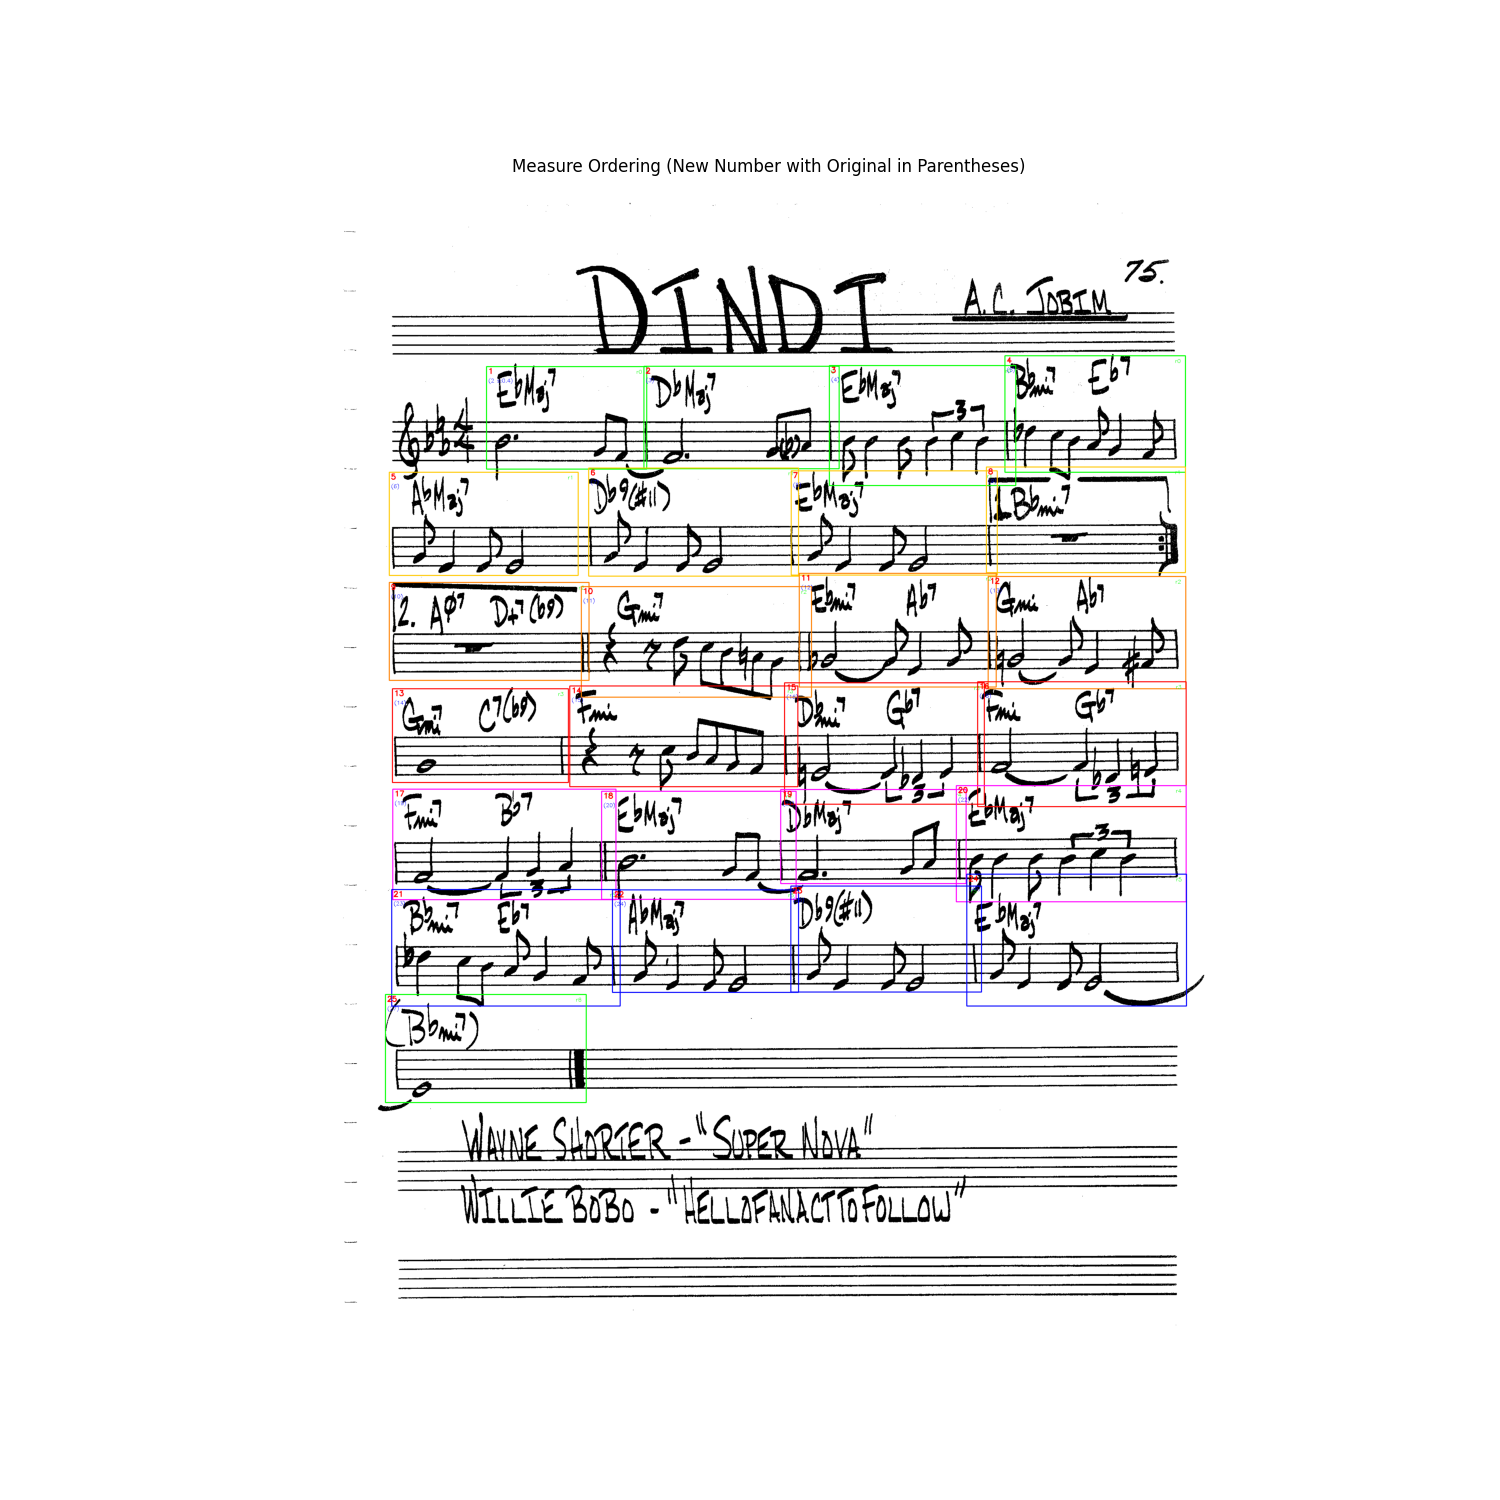 Measure Ordering (New Number with Original in Parentheses)
75.
DINDI
A.C. JOBIM
1 EbMaj7 2 DbMaj7 3 EbMaj7 4 Bbmi7 Eb7
4 4 (b) 3
5 AbMaj7 6 Db9(#11) 7 EbMaj7 8 1. Bbmi7
9 2. AØ7 D+7(b9) 10 Gmi7 11 Ebmi7 Ab7 12 Gmi Ab7
13 Gmi7 C7(b9) 14 Fmi 15 Dbmi7 Gb7 16 Fmi Gb7
3 3
17 Fmi7 Bb7 18 EbMaj7 19 DbMaj7 20 EbMaj7
3 3
21 Bbmi7 Eb7 22 AbMaj7 23 Db9(#11) 24 EbMaj7
25 (Bbmi7)
WAYNE SHORTER - "SUPER NOVA"
WILLIE BOBO - "HELLOFANACTTOFOLLOW"